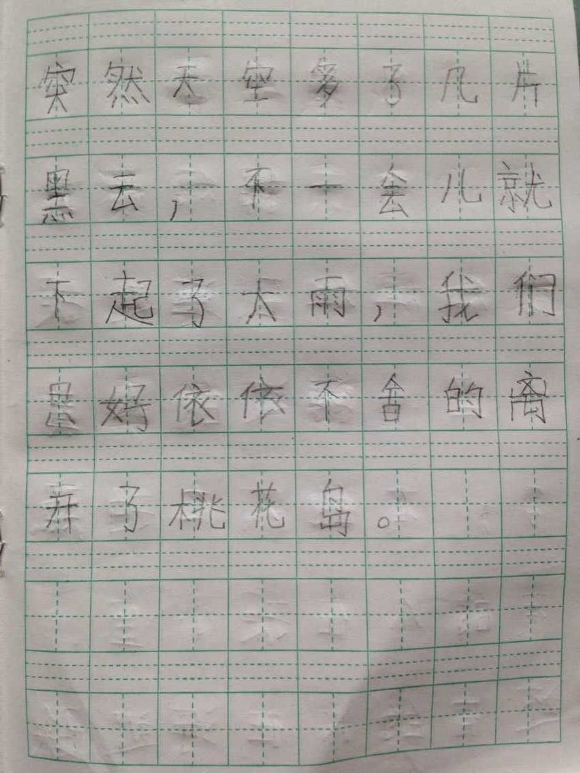 突然天空多了几片
黑去，不一会儿就
下起了大雨，我们
是好依依不舍的离
开了桃花岛。